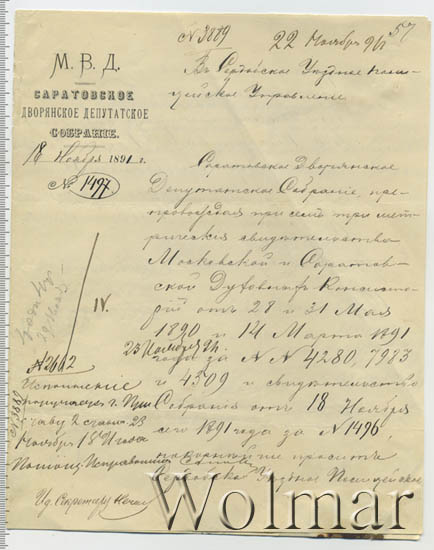 №3889
22 Ноября 91 г.
57
М. В. Д.
САРАТОВСКОЕ
ДВОРЯНСКОЕ ДЕПУТАТСКОЕ
СОБРАНІЕ.
18 Ноября 1891 г.
№ 1497
Въ Сердобское Уѣздное Поли-
цейское Управленіе
Саратовское Дворянское
Депутатское Собраніе, пре-
провождая при семъ три мет-
рическія свидѣтельства
Московской и Саратов-
ской Духовныхъ Консисто-
рій отъ 28 и 31 Мая
1890 и 14 Марта 1891
года за №№ 4280, 7983
и 4509 и свидѣтельство
Собранія отъ 18 Ноября
сего 1891 года за № 1496,
покорнѣйше проситъ
Сердобское Уѣздное Полицейское
IV.
№2602
25 Ноября 91 г.
Исполненіе
поручается г. При-
ставу 2 стана 23
Ноября 1891 года
Помощ. Исправника
Ид. Секретаря
№3889
Wolmar